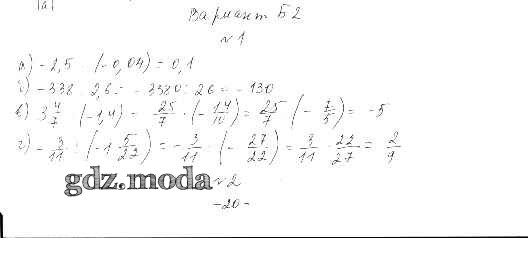 Вариант Б2
№1
а) -2,5 (-0,04) = 0,1
б) -338 2,6 = -3380 : 26 = -130
в) 3 4/7 (-1,4) = 25/7 · (- 14/10) = 25/7 (- 7/5) = -5
г) - 3/11 : (-1 5/22) = - 3/11 · (- 27/22) = 3/11 · 22/27 = 2/9
gdz.moda
№2
-20-